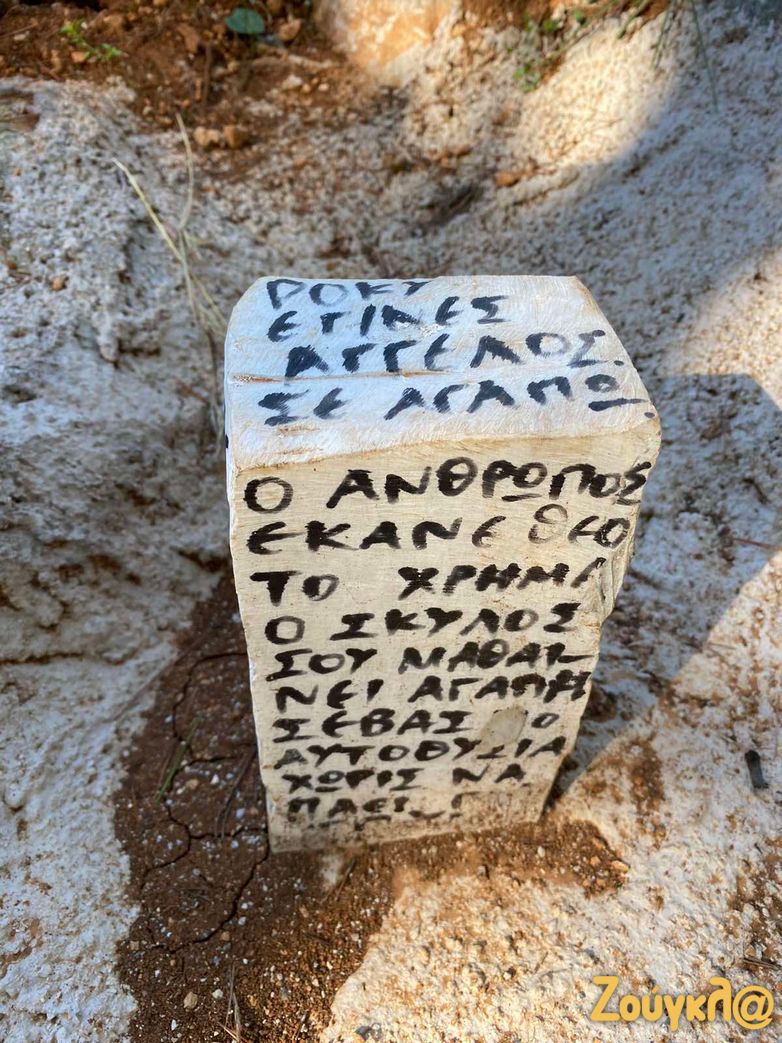 ΡΟΚΥ
ΕΓΙΝΕΣ
ΑΓΓΕΛΟΣ.
ΣΕ ΑΓΑΠΩ!
Ο ΑΝΘΡΩΠΟΣ
ΕΚΑΝΕ ΘΕΟ
ΤΟ ΧΡΗΜΑ
Ο ΣΚΥΛΟΣ
ΣΟΥ ΜΑΘΑΙ-
ΝΕΙ ΑΓΑΠΗ
ΣΕΒΑΣΜΟ
ΑΥΤΟΘΥΣΙΑ
ΧΩΡΙΣ ΝΑ
ΠΑΕΙ
Ζούγκλ@